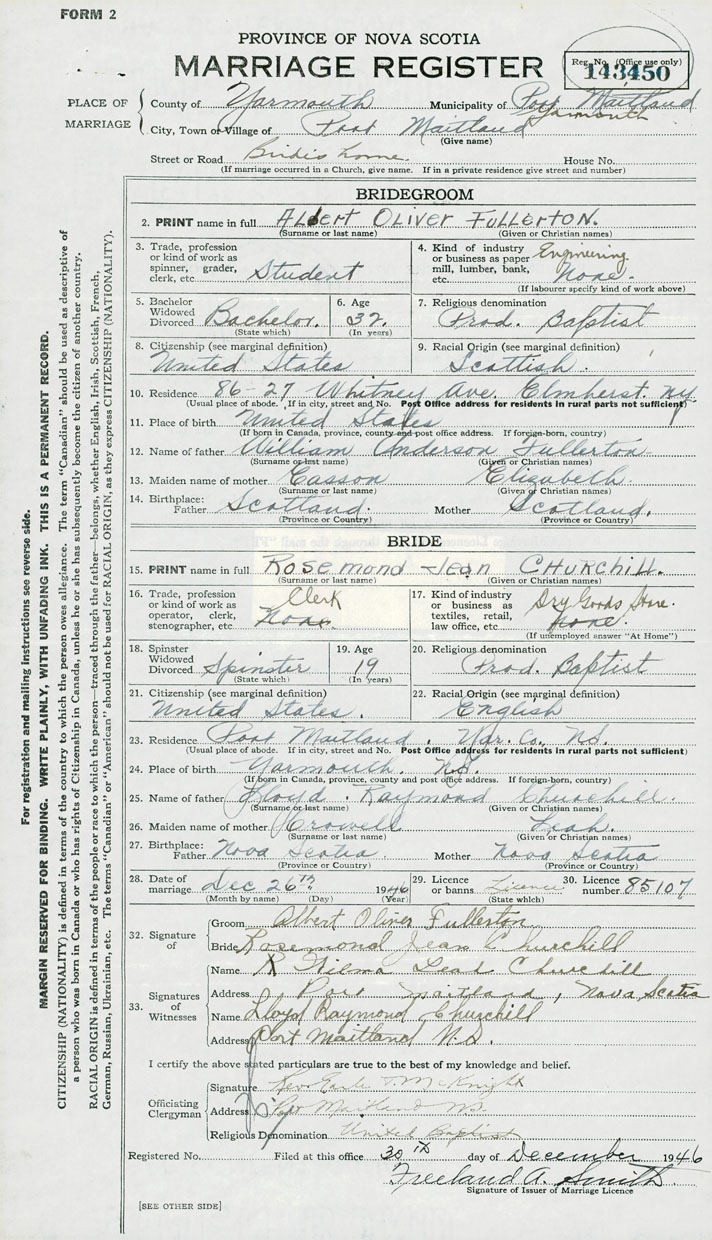 FORM 2
PROVINCE OF NOVA SCOTIA
MARRIAGE REGISTER
Reg. No. (Office use only)
143450
PLACE OF MARRIAGE
County of Yarmouth Municipality of Port Maitland Yarmouth
City, Town or Village of Port Maitland
(Give name)
Street or Road Bride's home. House No.
(If marriage occurred in a Church, give name. If in a private residence give street and number)
BRIDEGROOM
2. PRINT name in full ALbert OLIVER FULLERTON.
(Surname or last name) (Given or Christian names)
3. Trade, profession or kind of work as spinner, grader, clerk, etc. Student
4. Kind of industry or business as paper mill, lumber, bank, etc. Engineering None.
(If labourer specify kind of work above)
5. Bachelor Widowed Divorced Bachelor.
(State which)
6. Age 32.
(In years)
7. Religious denomination Prod. Baptist
8. Citizenship (see marginal definition) United States
9. Racial Origin (see marginal definition) Scottish.
10. Residence 86-27 Whitney Ave. Elmherst. NY
(Usual place of abode. If in city, street and No. Post Office address for residents in rural parts not sufficient)
11. Place of birth United States
(If born in Canada, province, county and post office address. If foreign-born, country)
12. Name of father William Anderson Fullerton
(Surname or last name) (Given or Christian names)
13. Maiden name of mother Casson Elizabeth.
(Surname or last name) (Given or Christian names)
14. Birthplace: Father Scotland. Mother Scotland.
(Province or Country) (Province or Country)
BRIDE
15. PRINT name in full Rosemond Jean CHURCHILL.
(Surname or last name) (Given or Christian names)
16. Trade, profession or kind of work as operator, clerk, stenographer, etc. Clerk None.
17. Kind of industry or business as textiles, retail, law office, etc. Dry Goods Store. None.
(If unemployed answer "At Home")
18. Spinster Widowed Divorced Spinster
(State which)
19. Age 19
(In years)
20. Religious denomination Prod. Baptist
21. Citizenship (see marginal definition) United States.
22. Racial Origin (see marginal definition) English
23. Residence Port Maitland. Yar. Co., N.S.
(Usual place of abode. If in city, street and No. Post Office address for residents in rural parts not sufficient)
24. Place of birth Yarmouth. N.S.
(If born in Canada, province, county and post office address. If foreign-born, country)
25. Name of father Lloyd. Raymond Churchill.
(Surname or last name) (Given or Christian names)
26. Maiden name of mother Crowell Leah.
(Surname or last name) (Given or Christian names)
27. Birthplace: Father Nova Scotia. Mother Nova Scotia
(Province or Country) (Province or Country)
28. Date of marriage Dec 26th 1946
(Month by name) (Day) (Year)
29. Licence or banns Licence
(State which)
30. Licence number 85107
32. Signature of
Groom Albert Oliver Fullerton
Bride Rosemond Jean Churchill
33. Signatures of Witnesses
Name Wilma Churchill
Address Port Maitland, Nova Scotia
Name Lloyd Raymond Churchill
Address Port Maitland N.S.
I certify the above stated particulars are true to the best of my knowledge and belief.
Officiating Clergyman
Signature Rev Earle T. McKnight
Address Port Maitland NS.
Religious Denomination United Baptist
Registered No. Filed at this office 30th day of December 1946
Freeland A. Smith
Signature of Issuer of Marriage Licence
[SEE OTHER SIDE]
For registration and mailing instructions see reverse side.
MARGIN RESERVED FOR BINDING. WRITE PLAINLY, WITH UNFADING INK. THIS IS A PERMANENT RECORD.
CITIZENSHIP (NATIONALITY) is defined in terms of the country to which the person owes allegiance. The term "Canadian" should be used as descriptive of
a person who was born in Canada or who has rights of Citizenship in Canada, unless he or she has subsequently become the citizen of another country.
RACIAL ORIGIN is defined in terms of the people or race to which the person—traced through the father—belongs, whether English, Irish, Scottish, French,
German, Russian, Ukrainian, etc. The terms "Canadian" or "American" should not be used for RACIAL ORIGIN, as they express CITIZENSHIP (NATIONALITY).